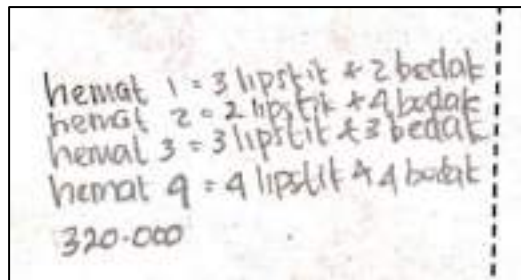 hemat 1 = 3 lipstik + 2 bedak
hemat 2 = 2 lipstik + 4 bedak
hemat 3 = 3 lipstik + 3 bedak
hemat 4 = 4 lipstik + 4 bedak
320.000